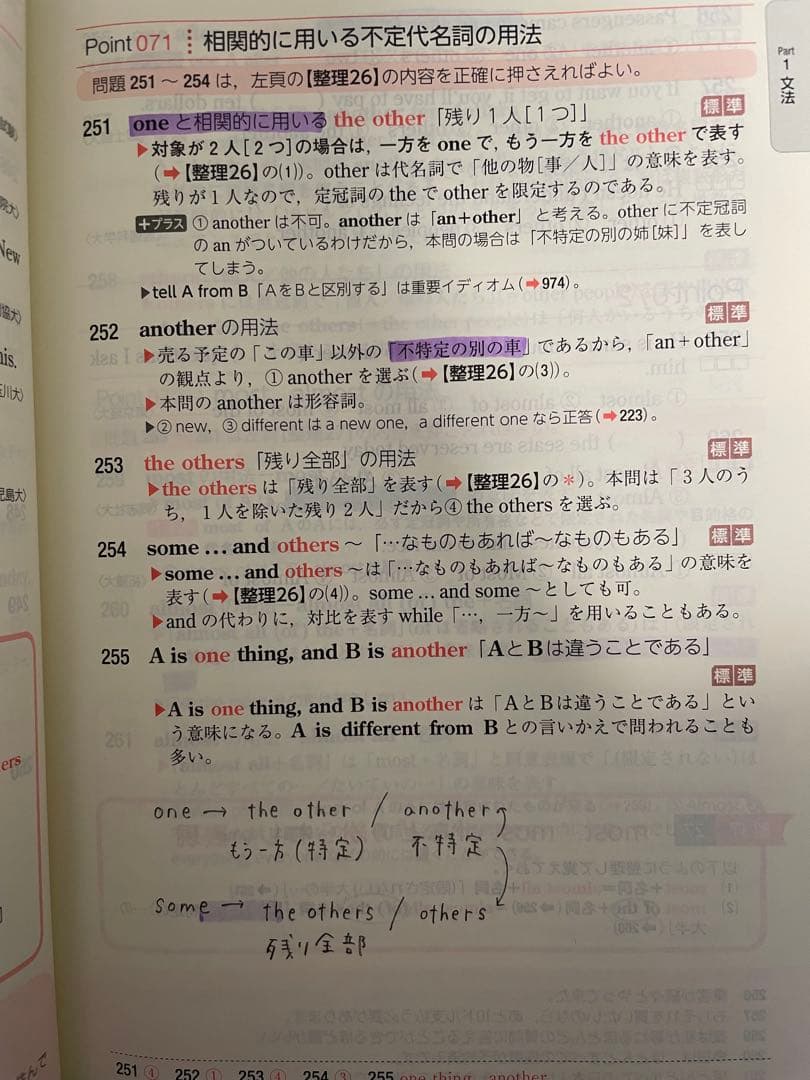 Point 071 相関的に用いる不定代名詞の用法
Part 1 文法
問題 251 〜 254 は，左頁の【整理26】の内容を正確に押さえればよい。
251 one と相関的に用いる the other「残り1人[1つ]」 標準
▶対象が2人[2つ]の場合は，一方を one で，もう一方を the other で表す
(➡【整理26】の(1))。other は代名詞で「他の物[事／人]」の意味を表す。
残りが1人なので，定冠詞の the で other を限定するのである。
＋プラス ① another は不可。another は「an＋other」と考える。other に不定冠詞
の an がついているわけだから，本問の場合は「不特定の別の姉[妹]」を表し
てしまう。
▶tell A from B「AをBと区別する」は重要イディオム(➡974)。
252 another の用法 標準
▶売る予定の「この車」以外の「不特定の別の車」であるから，「an＋other」
の観点より，① another を選ぶ(➡【整理26】の(3))。
▶本問の another は形容詞。
▶② new，③ different は a new one，a different one なら正答(➡223)。
253 the others「残り全部」の用法 標準
▶the others は「残り全部」を表す(➡【整理26】の＊)。本問は「3人のう
ち，1人を除いた残り2人」だから④ the others を選ぶ。
254 some … and others 〜「…なものもあれば〜なものもある」 標準
▶some … and others 〜は「…なものもあれば〜なものもある」の意味を
表す(➡【整理26】の(4))。some … and some 〜としても可。
▶and の代わりに，対比を表す while「…，一方〜」を用いることもある。
255 A is one thing, and B is another「AとBは違うことである」
標準
▶A is one thing, and B is another は「AとBは違うことである」とい
う意味になる。A is different from B との言いかえで問われることも
多い。
one → the other / another
もう一方(特定) 不特定
some → the others / others
残り全部
251 ④ 252 ① 253 ④ 254 ③ 255 one thing, another